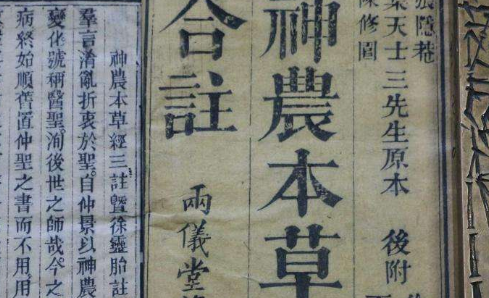 隱菴
葉天士三先生原本 後附
陳修園
神農本草
合註
兩儀堂
神農本草經三註暨徐靈胎註
羣言淆亂折衷於聖自仲景以神農
變化號稱醫聖洵後世之師哉今之
病終如順舊置仲聖之書而不用用